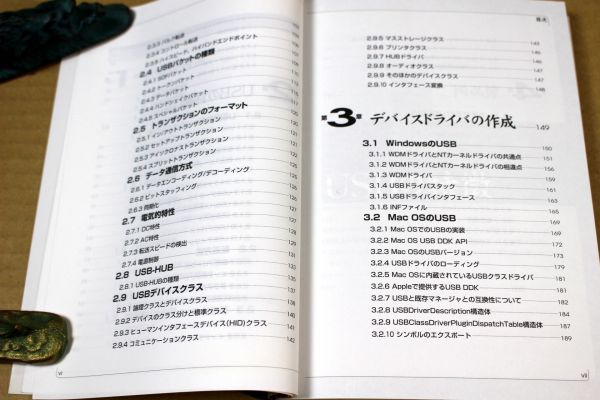 2.3.3 バルク転送
2.3.4 コントロール転送
2.3.5 ハイスピード、ハイバンドエンドポイント
2.4 USBパケットの種類
2.4.1 SOFパケット
2.4.2 トークンパケット
2.4.3 データパケット
2.4.4 ハンドシェイクパケット
2.4.5 スペシャルパケット
2.5 トランザクションのフォーマット
2.5.1 イン/アウトトランザクション
2.5.2 セットアップトランザクション
2.5.3 アイソクロナストランザクション
2.5.4 スプリットトランザクション
2.6 データ通信方式
2.6.1 データエンコーディング/デコーディング
2.6.2 ビットスタッフィング
2.6.3 同期化
2.7 電気的特性
2.7.1 DC特性
2.7.2 AC特性
2.7.3 転送スピードの検出
2.7.4 電源制御
2.8 USB-HUB
2.8.1 USB-HUBの種類
2.9 USBデバイスクラス
2.9.1 論理クラスとデバイスクラス
2.9.2 デバイスのクラス分けと標準クラス 138
2.9.3 ヒューマンインタフェースデバイス(HID)クラス 141
2.9.4 コミュニケーションクラス 142
vi
目次
2.9.5 マスストレージクラス 143
2.9.6 プリンタクラス 145
2.9.7 HUBドライバ
2.9.8 オーディオクラス
2.9.9 そのほかのデバイスクラス 147
2.9.10 インタフェース変換 148
3 デバイスドライバの作成 149
3.1 WindowsのUSB 150
3.1.1 WDMドライバとNTカーネルドライバの共通点 151
3.1.2 WDMドライバとNTカーネルドライバの相違点
3.1.3 WDMドライバ
3.1.4 USBドライバスタック 161
3.1.5 USBドライバインタフェース 163
3.1.6 INFファイル 165
3.2 Mac OSのUSB 168
3.2.1 Mac OSでのUSBの実装 169
3.2.2 Mac OS USB DDK API 172
3.2.3 Mac OSのUSBバージョン 173
3.2.4 USBドライバのローディング 179
3.2.5 Mac OSに内蔵されているUSBクラスドライバ 181
3.2.6 Appleで提供するUSB DDK 181
3.2.7 USBと既存マネージャとの互換性について 182
3.2.8 USBDriverDescription構造体 184
3.2.9 USBClassDriverPluginDispatchTable構造体 187
3.2.10 シンボルのエクスポート 189
vii